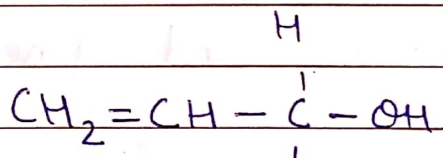 H
CH₂=CH-C-OH